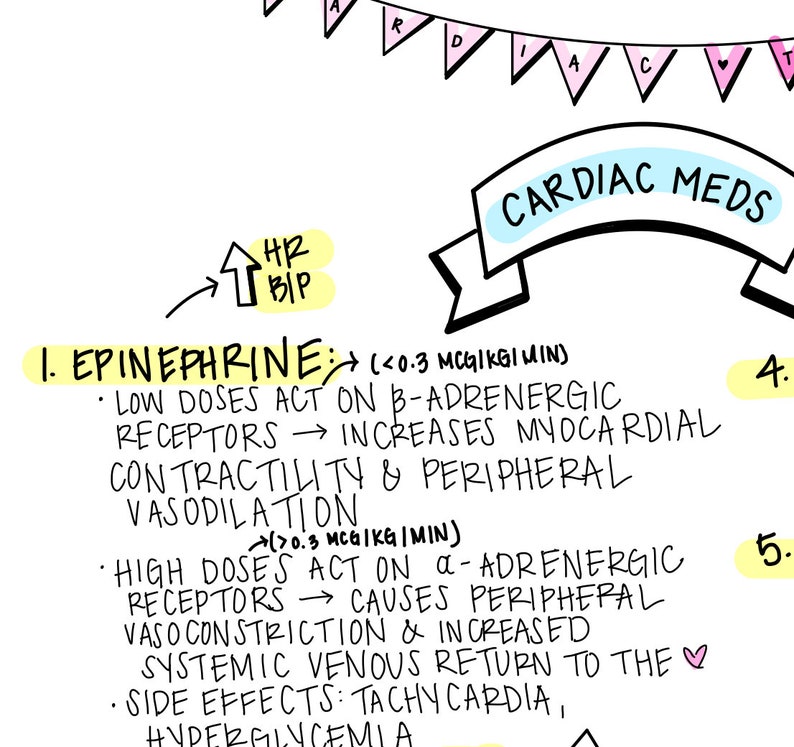 ARDIAC ♥ T
CARDIAC MEDS
HR
B/P
1. EPINEPHRINE: → (<0.3 MCG/KG/MIN)
• LOW DOSES ACT ON β-ADRENERGIC
RECEPTORS → INCREASES MYOCARDIAL
CONTRACTILITY & PERIPHERAL
VASODILATION
→ (>0.3 MCG/KG/MIN)
• HIGH DOSES ACT ON α-ADRENERGIC
RECEPTORS → CAUSES PERIPHERAL
VASOCONSTRICTION & INCREASED
SYSTEMIC VENOUS RETURN TO THE ♥
• SIDE EFFECTS: TACHYCARDIA,
HYPERGLYCEMIA
4.
5.